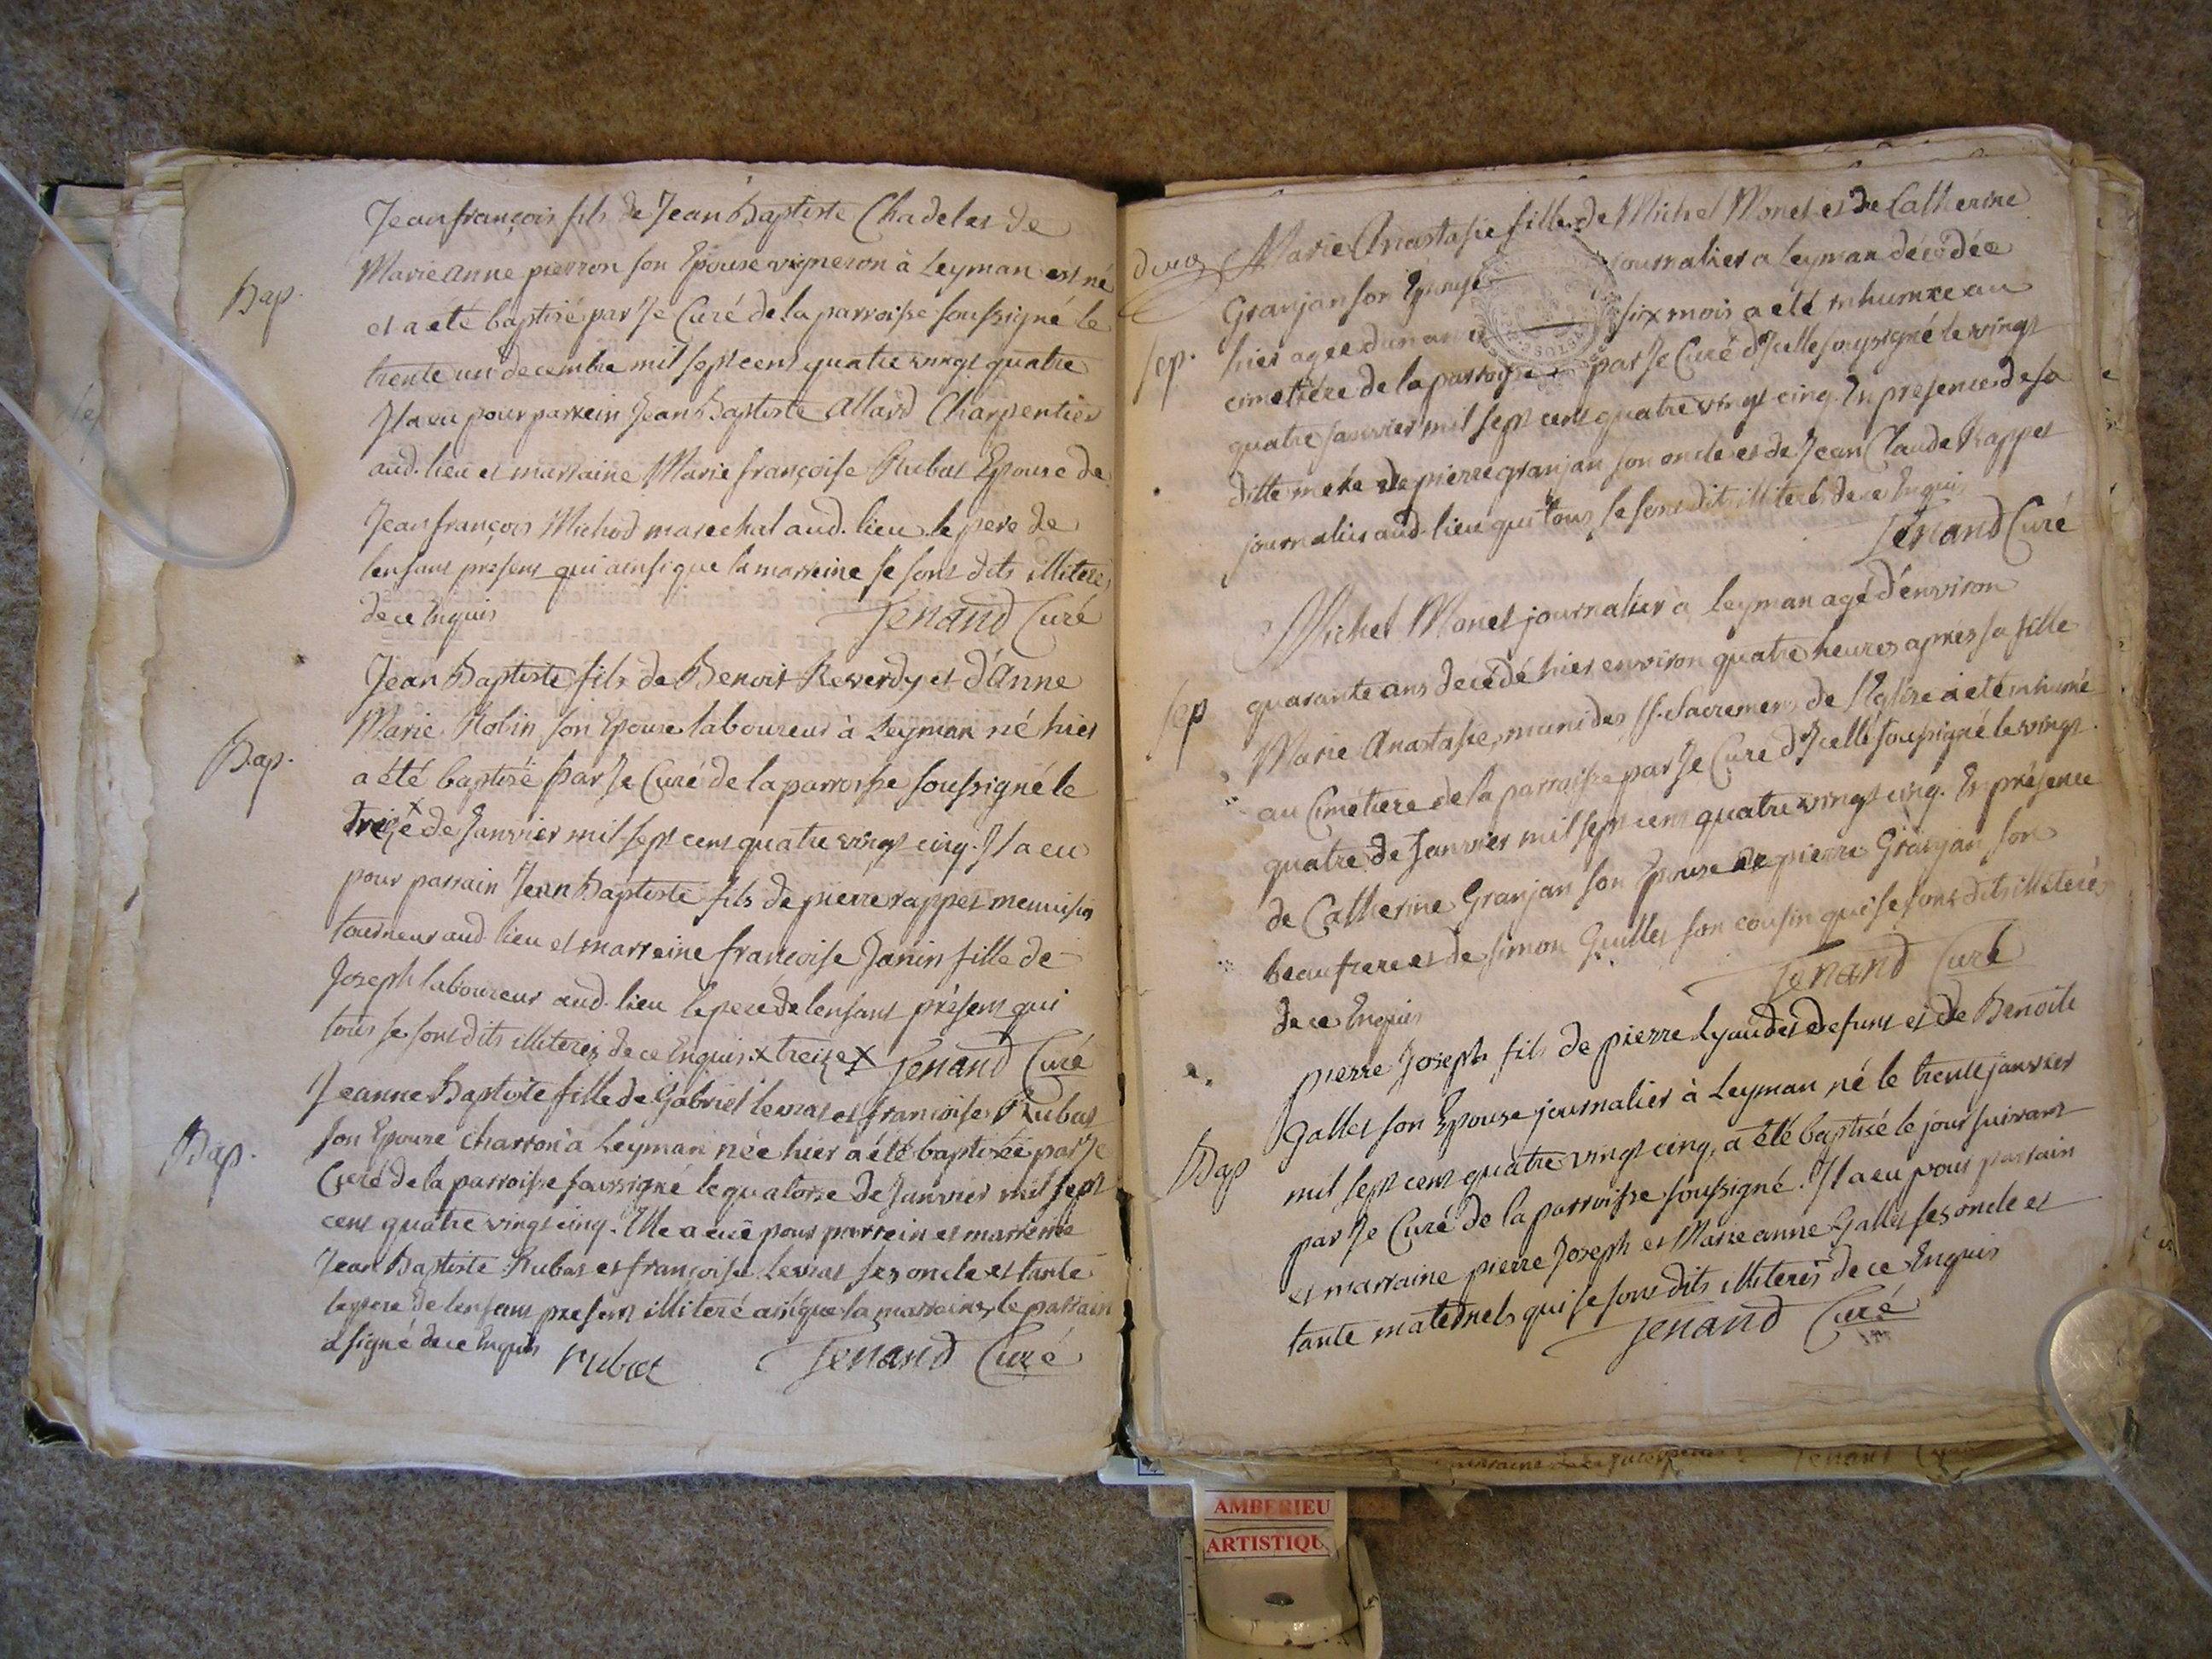 Jean françois fils de Jean Baptiste Chadel et de
Marie anne pierron son Epouse vigneron à Leyman est né
Bap.
et a été baptisé par Je Curé de la parroisse soussigné le
trente un decembre mil sept cent quatre vingt quatre
Il a eu pour parrein Jean Baptiste Allard Charpentier
aud. lieu et marraine Marie françoise Rubat Epouse de
Jean françois Michod marechal aud. lieu le pere de
lenfant présent qui ainsi que la marreine se sont dits illiteres
de ce Enquis Jenand Curé
Jean Baptiste fils de Benoit Reverdy et d'Anne
Marie Robin son Epouse laboureur à Leyman né hier
Bap.
a été baptisé par Je Curé de la parroisse soussigné le
treize x de Janvier mil sept cent quatre vingt cinq. Il a eu
pour parrain Jean Baptiste fils de pierre rappet menuisier
tourneur aud. lieu et marreine françoise Janin fille de
Joseph laboureur aud. lieu le pere de lenfant présent qui
tous se sont dits illiterés de ce Enquis x treize x Jenand Curé
Jeanne Baptiste fille de Gabriel Levrat et françoise Rubat
son Epouse charron à Leyman née hier a été baptisée par Je
Bap.
Curé de la parroisse soussigné le quatorze de Janvier mil sept
cent quatre vingt cinq. Elle a eue pour parrein et marreine
Jean Baptiste Rubat et françoise Levrat ses oncle et tante
le pere de lenfant present illiteré ainsi que la marraine, le parrain
a signé de ce Enquis rubat Jenand Curé
deux
Marie Anastasie fille de Michel Monet et de Catherine
Granjan son Epouse journalier a Leyman décédée
Sep.
hier agée d'un an et six mois a été inhumée au
cimetière de la parroisse par Je Curé d'Icelle soussigné le vingt
quatre janvier mil sept cent quatre vingt cinq. En presence de sa
ditte mere de pierre granjan son oncle et de Jean Claude Rappet
journalier aud. lieu qui tous se sont dits illiterés de ce Enquis
Jenand Curé
Michel Monet journalier à Leyman agé d'environ
quarante ans décédé hier environ quatre heures après sa fille
Sep
Marie Anastasie, muni des SS. Sacremens de l'Eglise a été inhumé
au Cimétiere de la parroisse par Je Curé d'Icelle soussigné le vingt
quatre de Janvier mil sept cent quatre vingt cinq. En présence
de Catherine Granjan son Epouse de pierre Granjan son
beaufrere et de simon Guillet son cousin qui se sont dits illiterés
de ce Enquis Jenand Curé
pierre Joseph fils de pierre Lyaudet defunt et de Benoite
Gallet son Epouse journalier à Leyman né le trente janvier
Bap
mil sept cent quatre vingt cinq, a été baptisé le jour suivant
par Je Curé de la parroisse soussigné. Il a eu pour parrain
et marraine pierre Joseph et Marie anne Gallet ses oncle et
tante maternels qui se sont dits illiterés de ce Enquis
Jenand Curé
AMBERIEU
ARTISTIQU